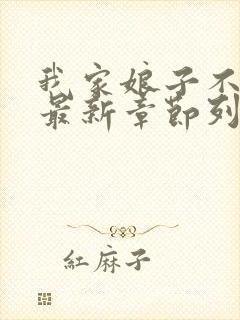 我家娘子不
最新章節列
紅麻子